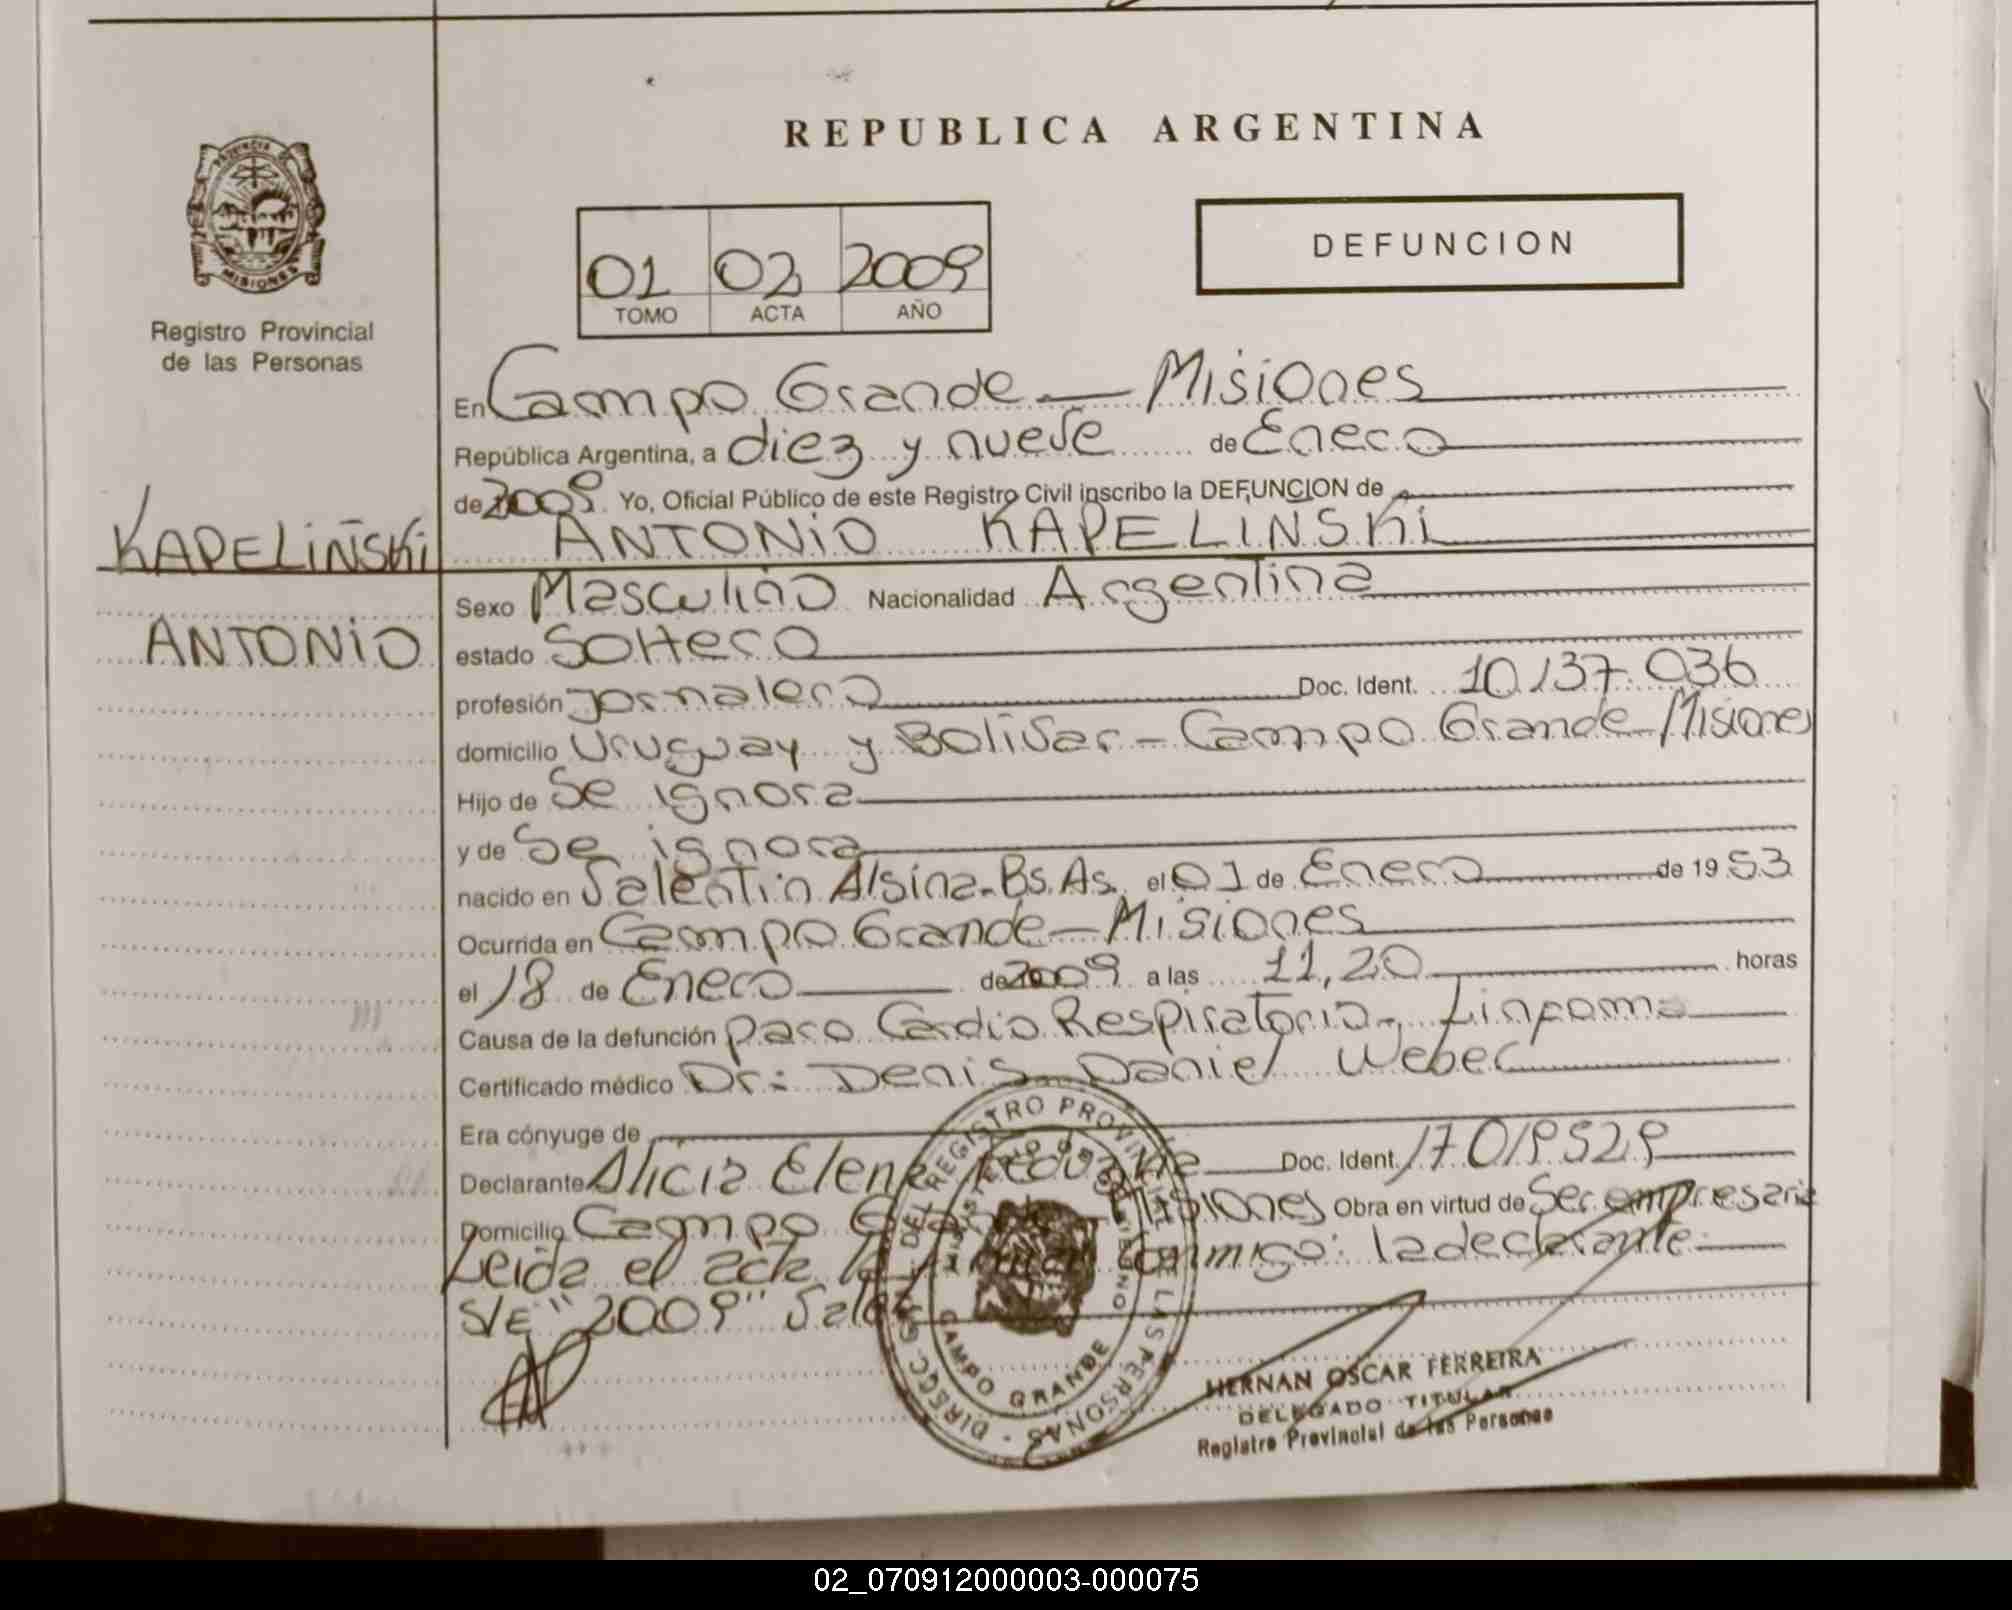 REPUBLICA ARGENTINA
PROVINCIA DE
MISIONES
Registro Provincial
de las Personas
01 02 2009
TOMO ACTA AÑO
DEFUNCION
En Campo Grande — Misiones
República Argentina, a diez y nueve de Enero
de 2009 Yo, Oficial Público de este Registro Civil inscribo la DEFUNCION de
KAPELIÑSKi
ANTONIO KAPELINSKI
Sexo Masculino Nacionalidad Argentina
ANTONIO
estado Soltero
profesión Jornalero Doc. Ident. 10.137.036
domicilio Uruguay y Bolivar - Campo Grande - Misiones
Hijo de Se ignora
y de Se ignora
nacido en Valentin Alsina - Bs. As. el 01 de Enero de 1953
Ocurrida en Campo Grande - Misiones
el 18 de Enero de 2009 a las 11,20 horas
Causa de la defunción Paro Cardio Respiratorio - Linfoma
Certificado médico Dr: Denis Daniel Weber
Era cónyuge de
Declarante Alicia Elena Doc. Ident. 17.019.529
Domicilio Campo Grande - Misiones Obra en virtud de Ser empresaria
Leida el acta la firman conmigo: la declarante
S/E "2009" Vale
DIRECC. GRAL. DEL REGISTRO PROVINCIAL DE LAS PERSONAS
MINISTERIO DE GOBIERNO
CAMPO GRANDE
HERNAN OSCAR FERREIRA
DELEGADO TITULAR
Registro Provincial de las Personas
02_070912000003-000075